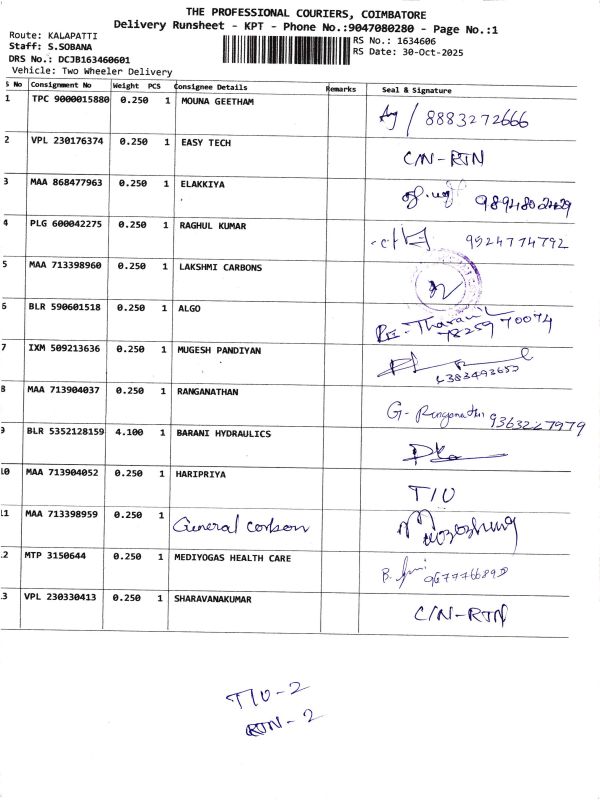 THE PROFESSIONAL COURIERS, COIMBATORE
Delivery Runsheet - KPT - Phone No.:9047080280 - Page No.:1
Route: KALAPATTI
Staff: S.SOBANA
DRS No.: DCJB163460601
Vehicle: Two Wheeler Delivery
RS No.: 1634606
RS Date: 30-Oct-2025
S No Consignment No Weight PCS Consignee Details Remarks Seal & Signature
1 TPC 9000015880 0.250 1 MOUNA GEETHAM 8883272666
2 VPL 230176374 0.250 1 EASY TECH C/N-RTN
3 MAA 868477963 0.250 1 ELAKKIYA
4 PLG 600042275 0.250 1 RAGHUL KUMAR 9924774792
5 MAA 713398960 0.250 1 LAKSHMI CARBONS
6 BLR 590601518 0.250 1 ALGO Tharani
78259 70074
7 IXM 509213636 0.250 1 MUGESH PANDIYAN
8 MAA 713904037 0.250 1 RANGANATHAN G- Ranganathan 9363227979
9 BLR 5352128159 4.100 1 BARANI HYDRAULICS
10 MAA 713904052 0.250 1 HARIPRIYA T/O
11 MAA 713398959 0.250 1 General corbon
12 MTP 3150644 0.250 1 MEDIYOGAS HEALTH CARE B.
13 VPL 230330413 0.250 1 SHARAVANAKUMAR C/N-RTN
T/O-2
RTN-2